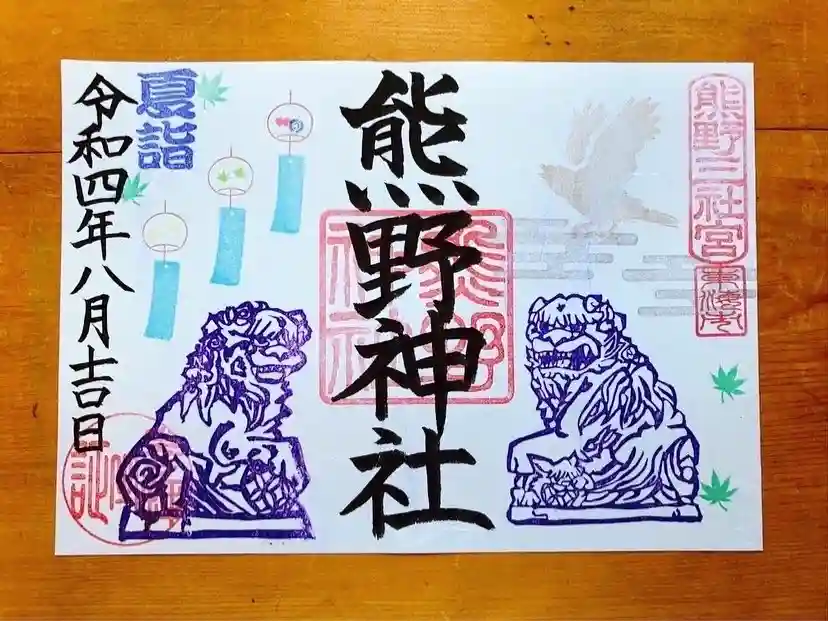 熊野三社宮
東海市
熊野神社
熊野
神社
夏詣
令和四年八月吉日